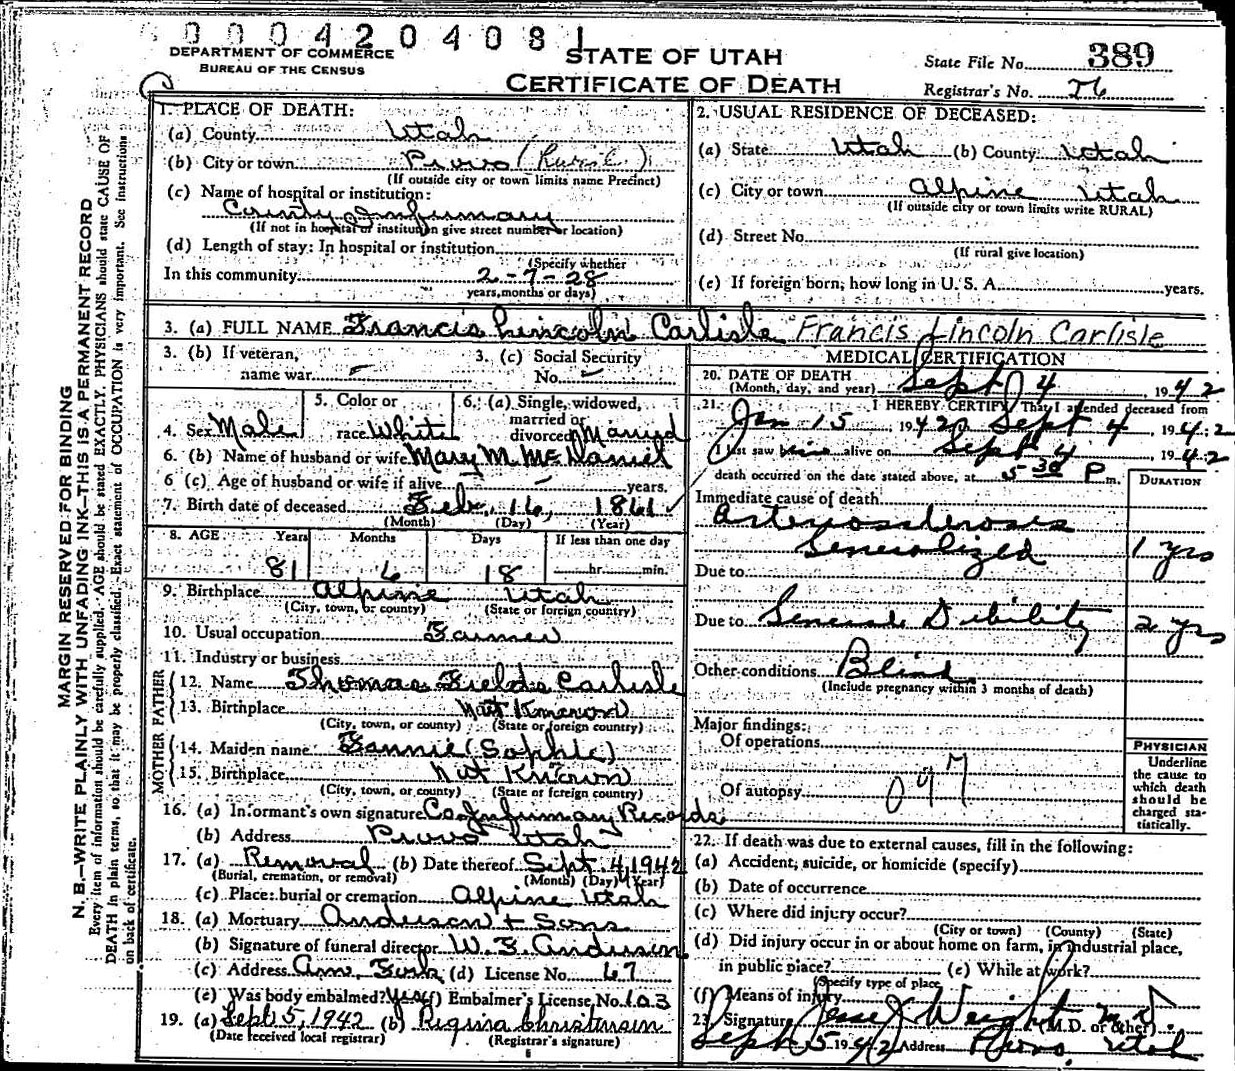 0004204081
DEPARTMENT OF COMMERCE
BUREAU OF THE CENSUS
STATE OF UTAH
CERTIFICATE OF DEATH
State File No. 389
Registrar's No. 76
MARGIN RESERVED FOR BINDING
N. B.—WRITE PLAINLY WITH UNFADING INK—THIS IS A PERMANENT RECORD
Every item of information should be carefully supplied. AGE should be stated EXACTLY. PHYSICIANS should state CAUSE OF
DEATH in plain terms, so that it may be properly classified. Exact statement of OCCUPATION is very important. See instructions
on back of certificate.
1. PLACE OF DEATH:
(a) County Utah
(b) City or town Provo (Rural)
(If outside city or town limits name Precinct)
(c) Name of hospital or institution:
County Infirmary
(If not in hospital or institution give street number or location)
(d) Length of stay: In hospital or institution
(Specify whether
In this community 2-7-28
years, months or days)
2. USUAL RESIDENCE OF DECEASED:
(a) State Utah (b) County Utah
(c) City or town Alpine Utah
(If outside city or town limits write RURAL)
(d) Street No.
(If rural give location)
(e) If foreign born, how long in U. S. A. years.
3. (a) FULL NAME Francis Lincoln Carlisle Francis Lincoln Carlisle
3. (b) If veteran, name war –
3. (c) Social Security No. –
4. Sex Male
5. Color or race White
6. (a) Single, widowed, married or divorced Married
6. (b) Name of husband or wife Mary M. McDaniel
6 (c) Age of husband or wife if alive – years.
7. Birth date of deceased Feb. 16, 1861
(Month) (Day) (Year)
8. AGE Years Months Days If less than one day
81 6 18 hr. min.
9. Birthplace Alpine Utah
(City, town, or county) (State or foreign country)
10. Usual occupation Farmer
11. Industry or business
FATHER
12. Name Thomas Fields Carlisle
13. Birthplace Not Known
(City, town, or county) (State or foreign country)
MOTHER
14. Maiden name Fannie (Sophie)
15. Birthplace Not Known
(City, town, or county) (State or foreign country)
16. (a) Informant's own signature Co Infirmary Records
(b) Address Provo Utah
17. (a) Removal (b) Date thereof Sept. 4 1942
(Burial, cremation, or removal) (Month) (Day) (Year)
(c) Place: burial or cremation Alpine Utah
18. (a) Mortuary Anderson + Sons
(b) Signature of funeral director W. E. Anderson
(c) Address Am. Fork (d) License No. 67
(e) Was body embalmed? Yes (f) Embalmer's License No. 103
19. (a) Sept 5, 1942 (b) Regina Christensen
(Date received local registrar) (Registrar's signature)
MEDICAL CERTIFICATION
20. DATE OF DEATH
(Month, day, and year) Sept 4, 1942
21. I HEREBY CERTIFY, That I attended deceased from
Jan 15 1942 Sept 4, 1942
I last saw him alive on Sept 4, 1942
death occurred on the date stated above, at 5 30 P m.
DURATION
Immediate cause of death
Arteriosclerosis
Generalized 1 yrs
Due to
Due to General Debility 2 yrs
Other conditions Blind
(Include pregnancy within 3 months of death)
Major findings:
Of operations
Of autopsy
097
PHYSICIAN
Underline
the cause to
which death
should be
charged sta-
tistically.
22. If death was due to external causes, fill in the following:
(a) Accident, suicide, or homicide (specify)
(b) Date of occurrence
(c) Where did injury occur?
(City or town) (County) (State)
(d) Did injury occur in or about home on farm, in industrial place,
in public place? (e) While at work?
(Specify type of place
(f) Means of injury
23. Signature Jesse J Weight M D (M.D. or other)
Sept 5 1942 Address Provo, Utah